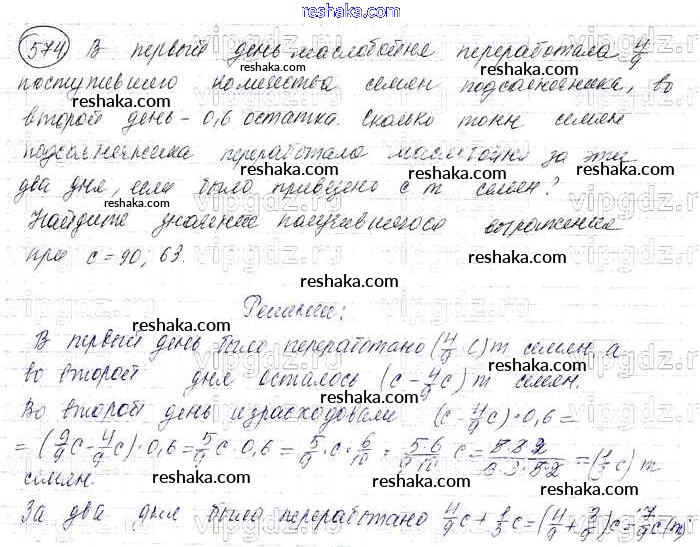 reshaka.com
574 В первый день маслобойня переработала 4/9
поступившего количества семян подсолнечника, во
второй день - 0,6 остатка. Сколько тонн семян
подсолнечника переработала маслобойня за эти
два дня, если было привезено c т семян?
Найдите значение получившегося выражения
при c = 90, 63.
Решение:
В первый день было переработано (4/9 c) т семян, а
во второй дня осталось (c - 4/9 c) т семян.
Во второй день израсходовали (c - 4/9 c) · 0,6 =
= (9/9 c - 4/9 c) · 0,6 = 5/9 c · 0,6 = 5/9 · c · 6/10 = 5·6/9·10 c = = (1/3 c) т
семян
За два дня было переработано 4/9 c + 1/3 c = (4/9 + 3/9) c = 7/9 c (т)